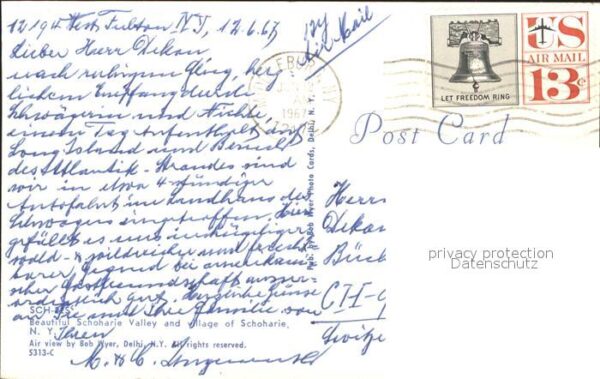 12194 West Fulton NY, 12.6.67
Lieber Herr Dekan
nach ruhigem Flug, herz-
lichem Empfang durch
Schwägerin und Nichte
einem Tag Aufenthalt auf
Long Island und Besuch
des Atlantik-Strandes sind
wir in etwa 4 stündiger
Autofahrt im Landhaus des
Schwagers eingetroffen. Hier
gefällt es uns in hügeliger
wald- & wildreicher und frucht
barer Gegend bei amerikani
scher Gastfreundschaft ausser-
ordentlich gut. Herzliche Grüsse
an Sie und Ihre Familie von
Ihren
M. & C.
by
Air Mail
1967
US
AIR MAIL
13c
LET FREEDOM RING
Post Card
Pub. by Bob Wyer Photo Cards, Delhi, N. Y.
Herrn
Dekan
CH-9
privacy protection
Datenschutz
SCH-
Beautiful Schoharie Valley and village of Schoharie,
N. Y.
Air view by Bob Wyer, Delhi, N.Y. All rights reserved.
S313-C